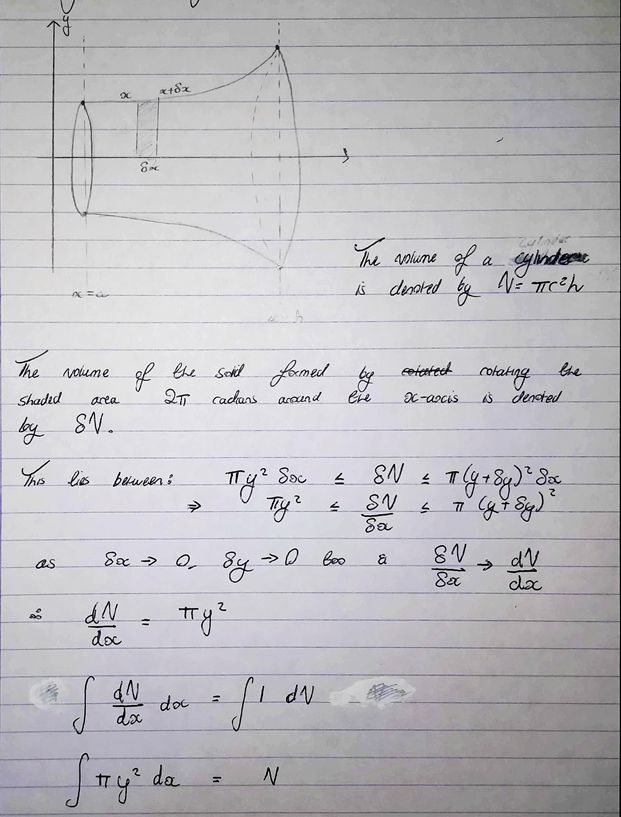 y
x
x+δx
δx
x=a
The volume of a cylinder
is denoted by V = πr²h
The volume of the solid formed by rotated rotating the
shaded area 2π radians around the x-axis is denoted
by δV.
This lies between: πy² δx ≤ δV ≤ π(y+δy)² δx
⇒ πy² ≤ δV/δx ≤ π (y+δy)²
as δx → 0, δy → 0 too & δV/δx → dV/dx
∴ dV/dx = πy²
∫ dV/dx dx = ∫ 1 dV
∫ πy² dx = V